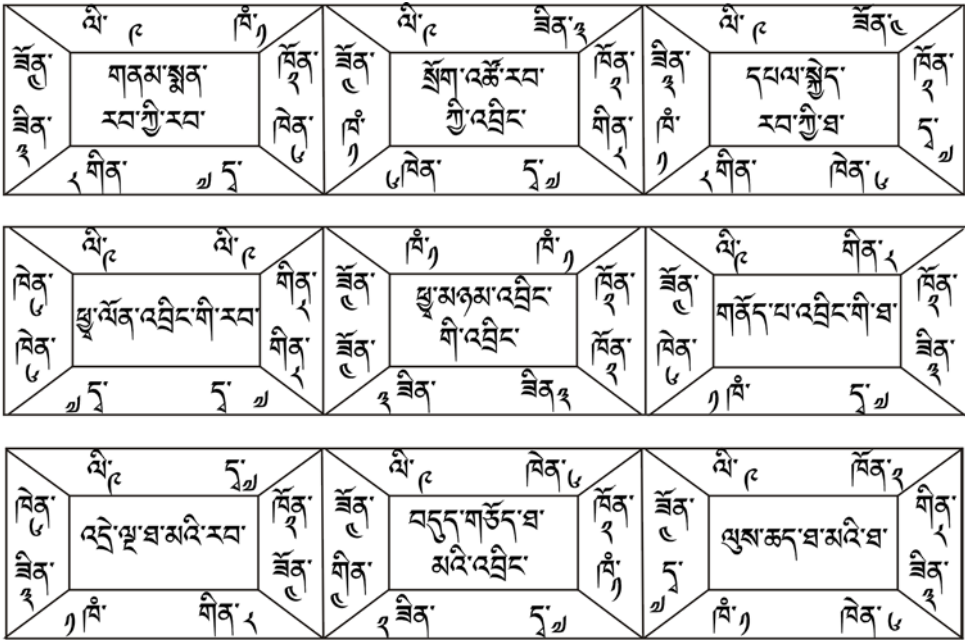 ལི་ ༩ ཁཾ་༡
ཟོན་ ༤
གནམ་སྨན་
རབ་ཀྱི་རབ་
ཁོན་ ༢
ཟིན་ ༣
ཁེན་ ༦
༨ གིན་ ༧ དྭ་
ལི་ ༩ ཟིན་༣
ཟོན་ ༤
སྲོག་འཚོ་རབ་
ཀྱི་འབྲིང་
ཁོན་ ༢
ཁཾ་ ༡
གིན་ ༨
༦ཁེན་ དྭ་༧
ལི་ ༩ ཟོན་༤
ཟིན་ ༣
དཔལ་སྐྱེད་
རབ་ཀྱི་ཐ་
ཁོན་ ༢
ཁཾ་ ༡
དྭ་ ༧
༨གིན་ ཁེན་ ༦
ལི་ ༩ ལི་ ༩
ཁེན་ ༦
ཕྱྭ་ལོན་འབྲིང་གི་རབ་
གིན་ ༨
ཁེན་ ༦
གིན་ ༨
༧ དྭ་ དྭ་ ༧
ཁཾ་༡ ཁཾ་ ༡
ཟོན་ ༤
ཕྱྭ་མཉམ་འབྲིང་
གི་འབྲིང་
ཁོན་ ༢
ཟོན་ ༤
ཁོན་ ༢
༣ ཟིན་ ཟིན་༣
ལི་༩ གིན་ ༨
ཟོན་ ༤
གནོད་པ་འབྲིང་གི་ཐ་
ཁོན་ ༢
ཁེན་ ༦
ཟིན་ ༣
༡ ཁཾ་ དྭ་ ༧
ལི་༩ དྭ་༧
ཁེན་ ༦
འདྲེ་ལྔ་ཐ་མའི་རབ་
ཁོན་ ༢
ཟིན་ ༣
ཟོན་ ༤
༡ ཁཾ་ གིན་ ༨
ལི་ ༩ ཁེན་༦
ཟོན་ ༤
བདུད་གཅོད་ཐ་
མའི་འབྲིང་
ཁོན་ ༢
གིན་ ༤
ཁཾ་༡
༢ ཟིན་ དྭ་ ༧
ལི་ ༩ ཁོན་༢
ཟོན་ ༤
ལུས་ཆད་ཐ་མའི་ཐ་
གིན་ ༨
དྭ་ ༧
ཟིན་ ༣
ཁཾ་ ༡ ཁེན་ ༦